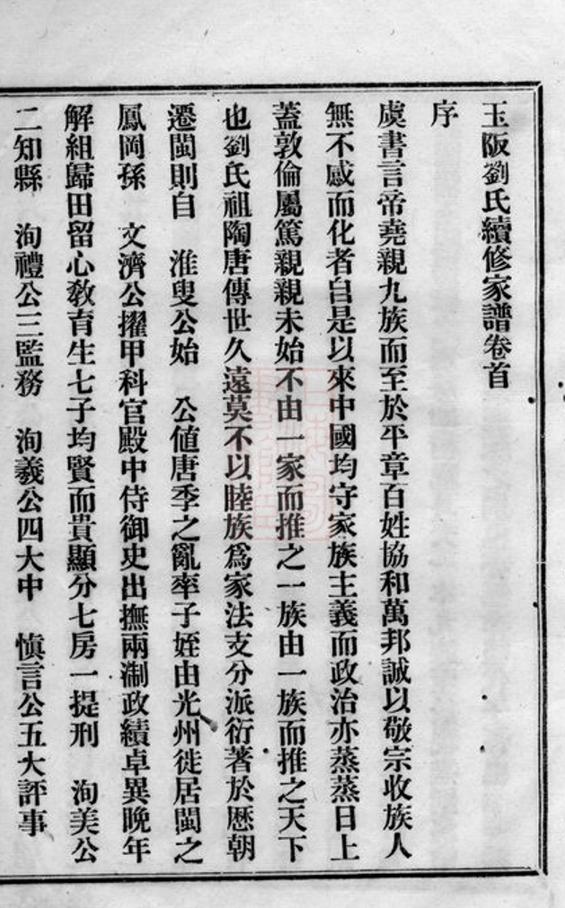 玉阪劉氏續修家譜卷首
序
虞書言帝堯親九族而至於平章百姓協和萬邦誠以敬宗收族人
無不感而化者自是以來中國均守家族主義而政治亦蒸蒸日上
蓋敦倫屬篤親親未始不由一家而推之一族由一族而推之天下
也劉氏祖陶唐傳世久遠莫不以睦族爲家法支分派衍著於歷朝
遷閩則自　淮叟公始　公値唐季之亂率子姪由光州徙居閩之
鳳岡孫　文濟公擢甲科官殿中侍御史出撫兩淛政績卓異晚年
解組歸田留心敎育生七子均賢而貴顯分七房一提刑　洵美公
二知縣　洵禮公三監務　洵羲公四大中　愼言公五大評事